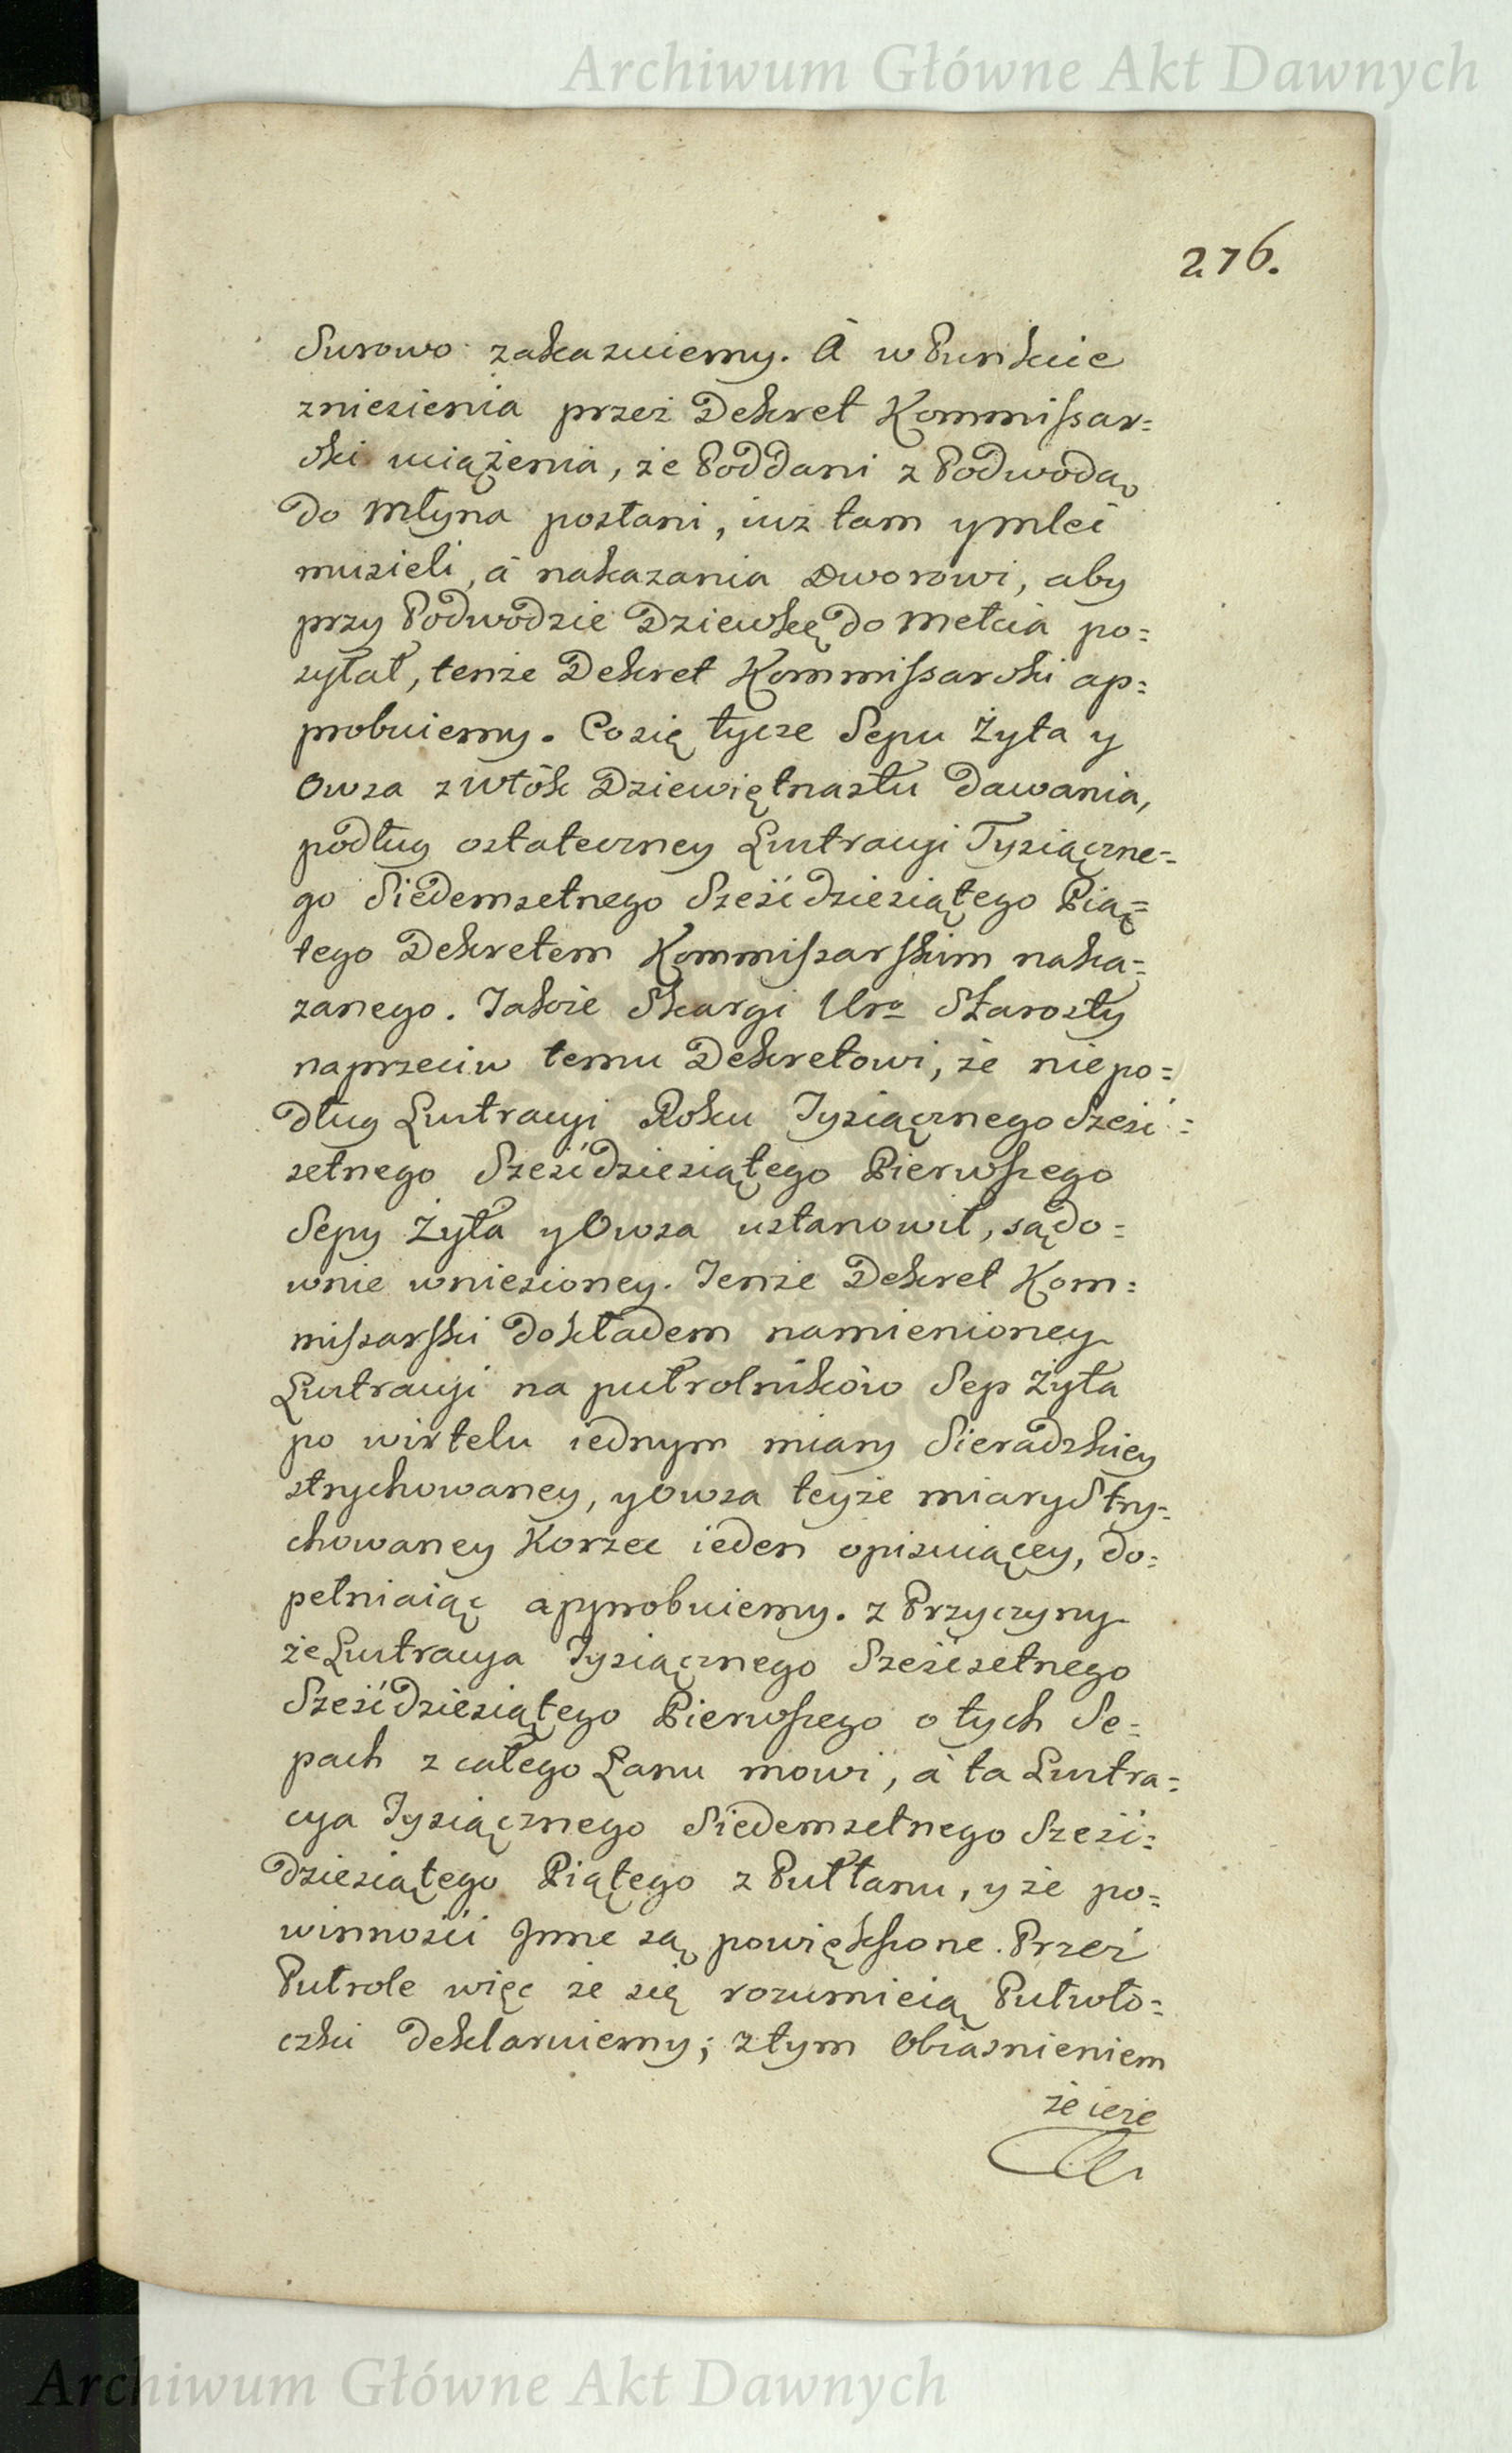 Archiwum Główne Akt Dawnych
276.
Surowo zakazuiemy. A w Punkcie
zniesienia przez Dekret Kommissar=
ski uciążenia, że Poddani z Podwodą
do Młyna posłani, iuż tam y mleć
musieli, á nakazania Dworowi, aby
przy Podwodzie Dziewkę do Mełcia po=
syłał, tenże Dekret Kommissarski ap=
probuiemy. Co się tycze Sepu Żyta y
Owsa z włók Dziewiętnastu dawania,
podług ostateczney Lustracyi Tysiączne=
go Siedemsetnego Sześćdziesiątego Pią=
tego Dekretem Kommissarskim naka=
zanego. Jakoże Skargi Uro Starosty
naprzeciw temu Dekretowi, że nie po=
dług Lustracyi Roku Tysiącznego Sześć=
setnego Sześćdziesiątego Pierwszego
Sepy Żyta y Owsa ustanowił, sądo=
wnie wniesioney. Tenże Dekret Kom=
missarski dokładem namienioney
Lustracyi na pułrolników Sep Żyta
po wirtelu iednym miary Sieradzkiey
strychowaney, y Owsa teyże miary Stry=
chowaney Korzec ieden opisuiącey, do=
pełniaiąc approbuiemy. z Przyczyny
że Lustracya Tysiącznego Sześćsetnego
Sześćdziesiątego Pierwszego o tych Se=
pach z całego Łanu mowi, á ta Lustra=
cya Tysiącznego Siedemsetnego Sześć=
dziesiątego Piątego z Pułłanu, y że po=
winności Jnne są powiększone. Przez
Pułrole więc że się rozumieią Pułwłó=
czki deklaruiemy; z tym Obiasnieniem
że ieże
Archiwum Główne Akt Dawnych